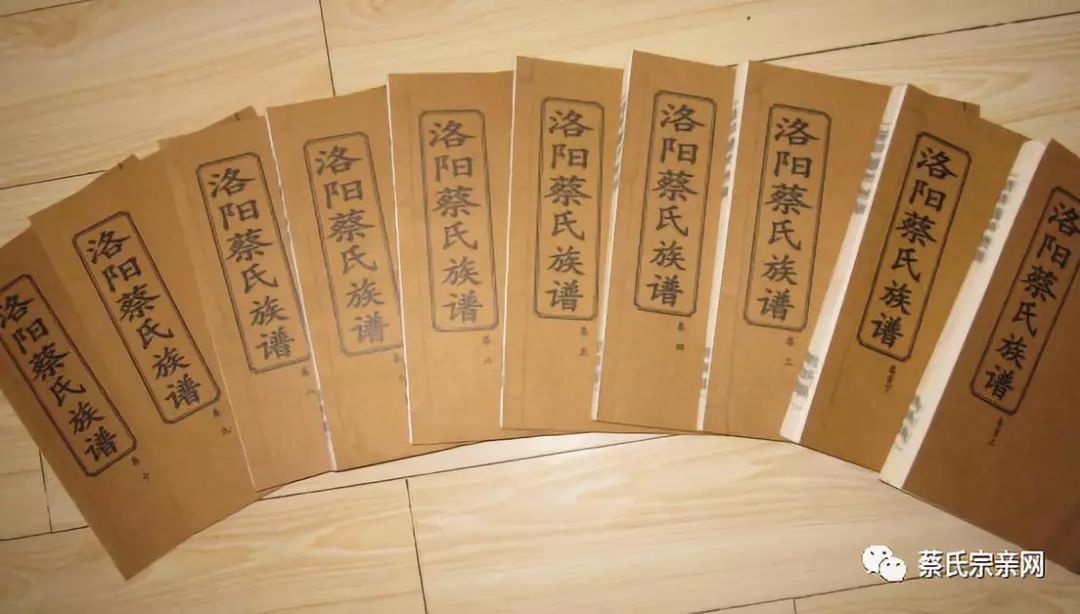 洛阳蔡氏族谱
卷十
洛阳蔡氏族谱
卷九
洛阳蔡氏族谱
卷八
洛阳蔡氏族谱
洛阳蔡氏族谱
卷六
洛阳蔡氏族谱
卷五
洛阳蔡氏族谱
卷四
洛阳蔡氏族谱
卷三
洛阳蔡氏族谱
洛阳蔡氏族谱
蔡氏宗亲网